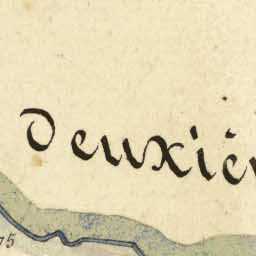 Deuxiè
75